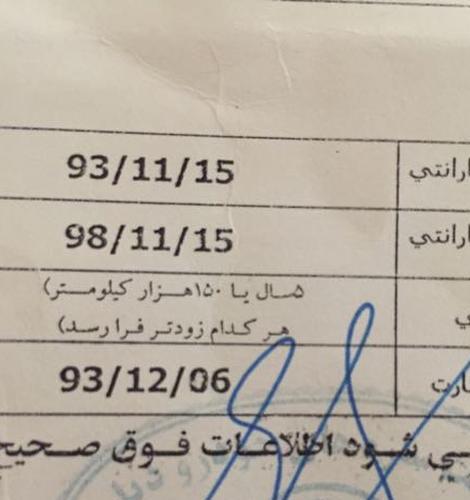 ارانتي 93/11/15
ارانتي 98/11/15
۵سال یا ۱۵۰هزار کیلومتر)
هر کدام زودتر فرا رسد)
93/12/06
شود اطلاعات فوق صحیح